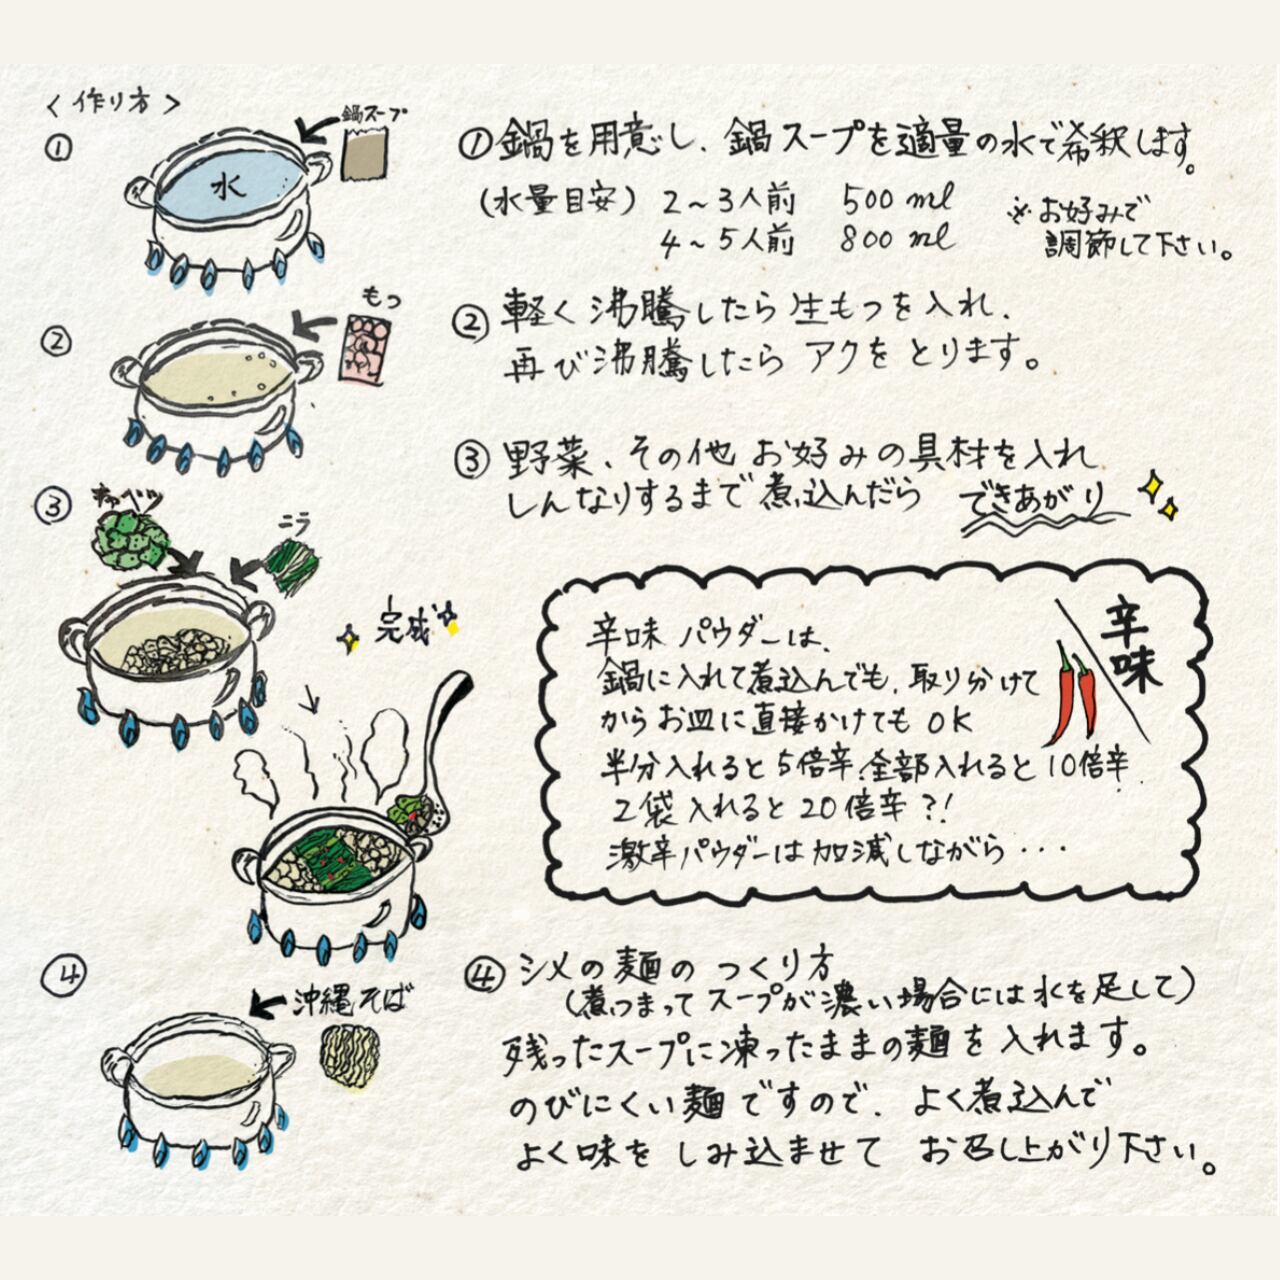 <作り方>
① 鍋スープ
水
①鍋を用意し、鍋スープを適量の水で希釈します。
(水量目安) 2~3人前 500ml ※お好みで
4~5人前 800ml 調節して下さい。
② もつ
②軽く沸騰したら生もつを入れ、
再び沸騰したらアクをとります。
③ キャベツ
ニラ
③野菜、その他お好みの具材を入れ
しんなりするまで煮込んだら できあがり
完成
辛味
辛味パウダーは、
鍋に入れて煮込んでも、取り分けて
からお皿に直接かけてもOK
半分入れると5倍辛、全部入れると10倍辛、
2袋入れると20倍辛?!
激辛パウダーは加減しながら・・・
④ 沖縄そば
④シメの麺のつくり方
(煮つまってスープが濃い場合には水を足して)
残ったスープに凍ったままの麺を入れます。
のびにくい麺ですので、よく煮込んで
よく味をしみ込ませてお召し上がり下さい。